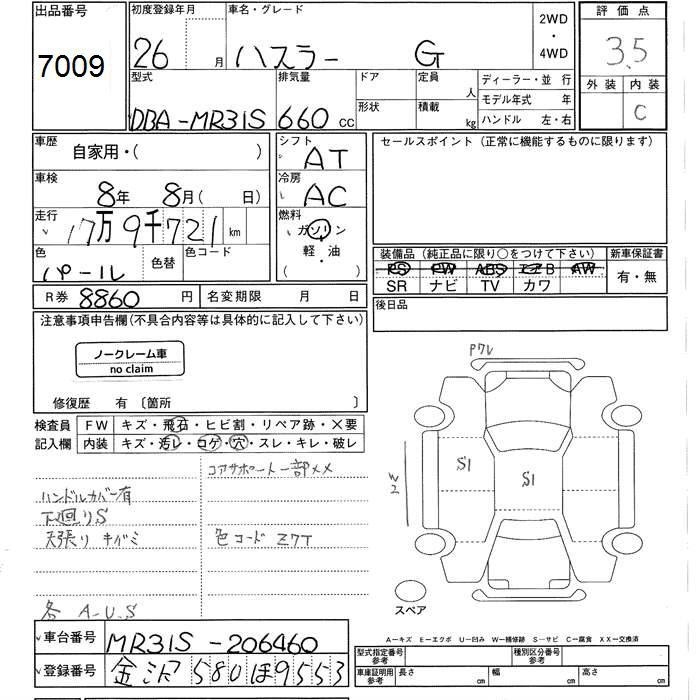 出品番号 初度登録年月 車名・グレード 2WD ・ 4WD 評価点
7009 26 月 ハスラー G 3.5
外装 内装
C
型式 排気量 ドア 定員 人 ディーラー・並 行
形状 積載 kg モデル年式 年
DBA-MR31S 660 CC ハンドル 左・右
車歴 自家用・( ) シフト AT セールスポイント (正常に機能するものに限ります)
車検 8年 8月( 日) 冷房 AC
走行 17万9千721 km 燃料 ガソリン
軽・油
( ・ )
色 パール 色替 色コード
装備品 (純正品に限り○をつけて下さい) 新車保証書
PS PW ABS エアB AW 有・無
SR ナビ TV カワ
R券 8860 円 名変期限 月 日 後日品
注意事項申告欄(不具合内容等は具体的に記入して下さい)
ノークレーム車
no claim
修復歴 有 〔箇所 〕
検査員 FW キズ・飛石・ヒビ割・リペア跡・X要
記入欄 内装 キズ・汚レ・コゲ・穴・スレ・キレ・破レ
コアサポート一部××
ハンドルカバー有
下廻りS
天張り キバミ 色コード Z7T
各 A-U.S
P7レ
W2
S1
S1
スペア
A-キズ E-エクボ U-凹み W-補修跡 S-サビ C-腐食 XX-交換済
車台番号 MR31S-206460
登録番号 金沢 580 ほ 9553
型式指定番号 参考 種別区分番号 参考
車庫証明用 参考 長さ cm 幅 cm 高さ cm